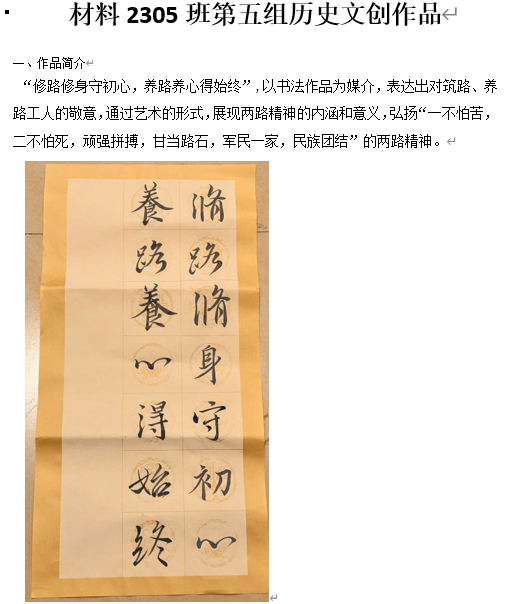 材料 2305 班第五组历史文创作品
一、作品简介
“修路修身守初心，养路养心得始终”，以书法作品为媒介，表达出对筑路、养
路工人的敬意，通过艺术的形式，展现两路精神的内涵和意义，弘扬“一不怕苦，
二不怕死，顽强拼搏，甘当路石，军民一家，民族团结”的两路精神。
脩路脩身守初心
養路養心得始终